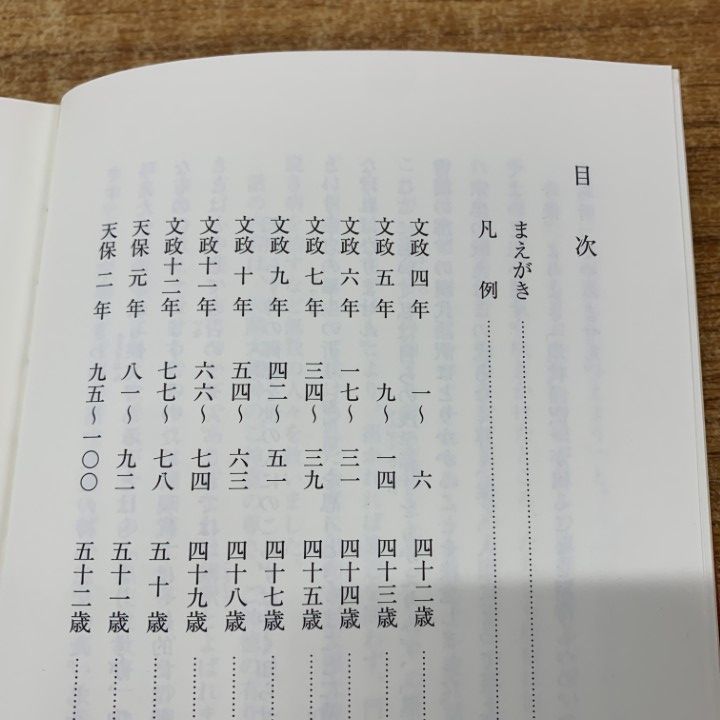 目次
まえがき
凡例
文政四年 一～六 四十二歳
文政五年 九～一四 四十三歳
文政六年 一七～三一 四十四歳
文政七年 三四～三九 四十五歳
文政九年 四二～五一 四十七歳
文政十年 五四～六三 四十八歳
文政十一年 六六～七四 四十九歳
文政十二年 七七～七八 五十歳
天保元年 八一～九二 五十一歳
天保二年 九五～一〇〇 五十二歳